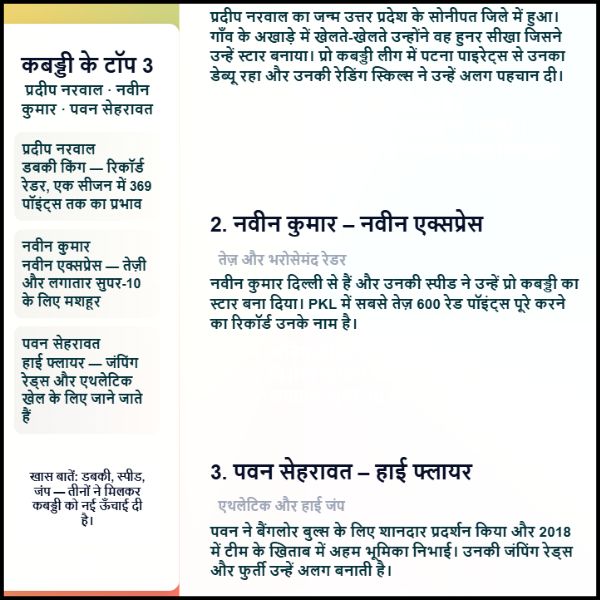 कबड्डी के टॉप 3
प्रदीप नरवाल · नवीन
कुमार · पवन सेहरावत
प्रदीप नरवाल
डबकी किंग — रिकॉर्ड
रेडर, एक सीजन में 369
पॉइंट्स तक का प्रभाव
नवीन कुमार
नवीन एक्सप्रेस — तेज़ी
और लगातार सुपर-10
के लिए मशहूर
पवन सेहरावत
हाई फ्लायर — जंपिंग
रेड्स और एथलेटिक
खेल के लिए जाने जाते
हैं
खास बातें: डबकी, स्पीड,
जंप — तीनों ने मिलकर
कबड्डी को नई ऊँचाई दी
है।
प्रदीप नरवाल का जन्म उत्तर प्रदेश के सोनीपत जिले में हुआ।
गाँव के अखाड़े में खेलते-खेलते उन्होंने वह हुनर सीखा जिसने
उन्हें स्टार बनाया। प्रो कबड्डी लीग में पटना पाइरेट्स से उनका
डेब्यू रहा और उनकी रेडिंग स्किल्स ने उन्हें अलग पहचान दी।
2. नवीन कुमार – नवीन एक्सप्रेस
तेज़ और भरोसेमंद रेडर
नवीन कुमार दिल्ली से हैं और उनकी स्पीड ने उन्हें प्रो कबड्डी का
स्टार बना दिया। PKL में सबसे तेज़ 600 रेड पॉइंट्स पूरे करने
का रिकॉर्ड उनके नाम है।
3. पवन सेहरावत – हाई फ्लायर
एथलेटिक और हाई जंप
पवन ने बैंगलोर बुल्स के लिए शानदार प्रदर्शन किया और 2018
में टीम के खिताब में अहम भूमिका निभाई। उनकी जंपिंग रेड्स
और फुर्ती उन्हें अलग बनाती है।